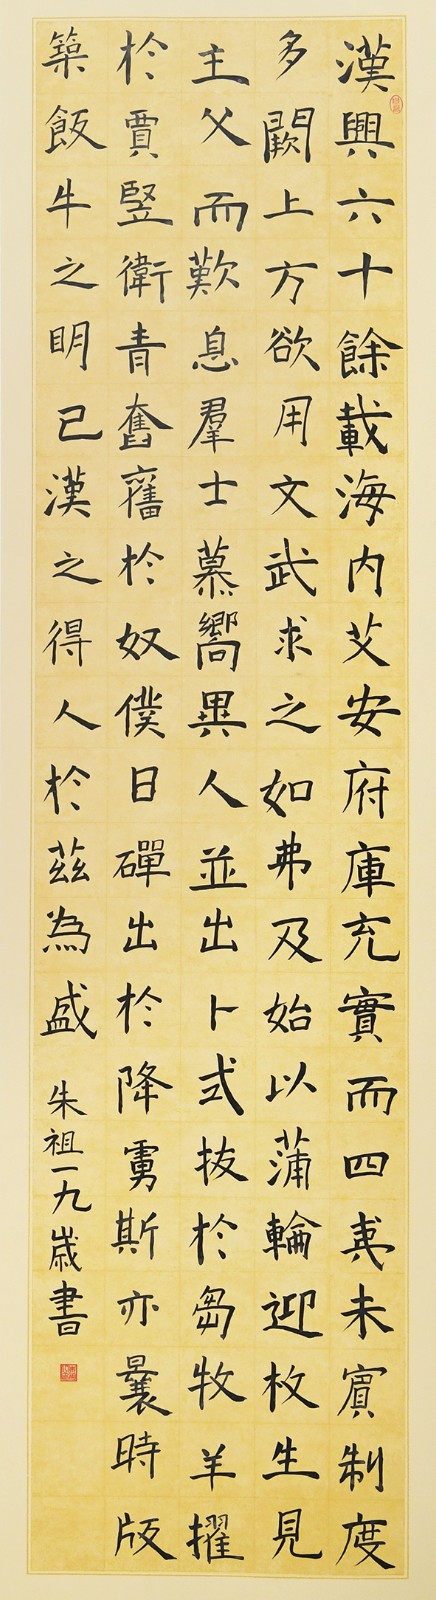 漢興六十餘載海內艾安府庫充實而四夷未賓制度
多闕上方欲用文武求之如弗及始以蒲輪迎枚生見
主父而歎息羣士慕嚮異人並出卜式拔於芻牧羊擢
於賈豎衛青奮於奴僕日磾出於降虜斯亦曩時版
築飯牛之眀已漢之得人於茲為盛 朱祖一九歲書